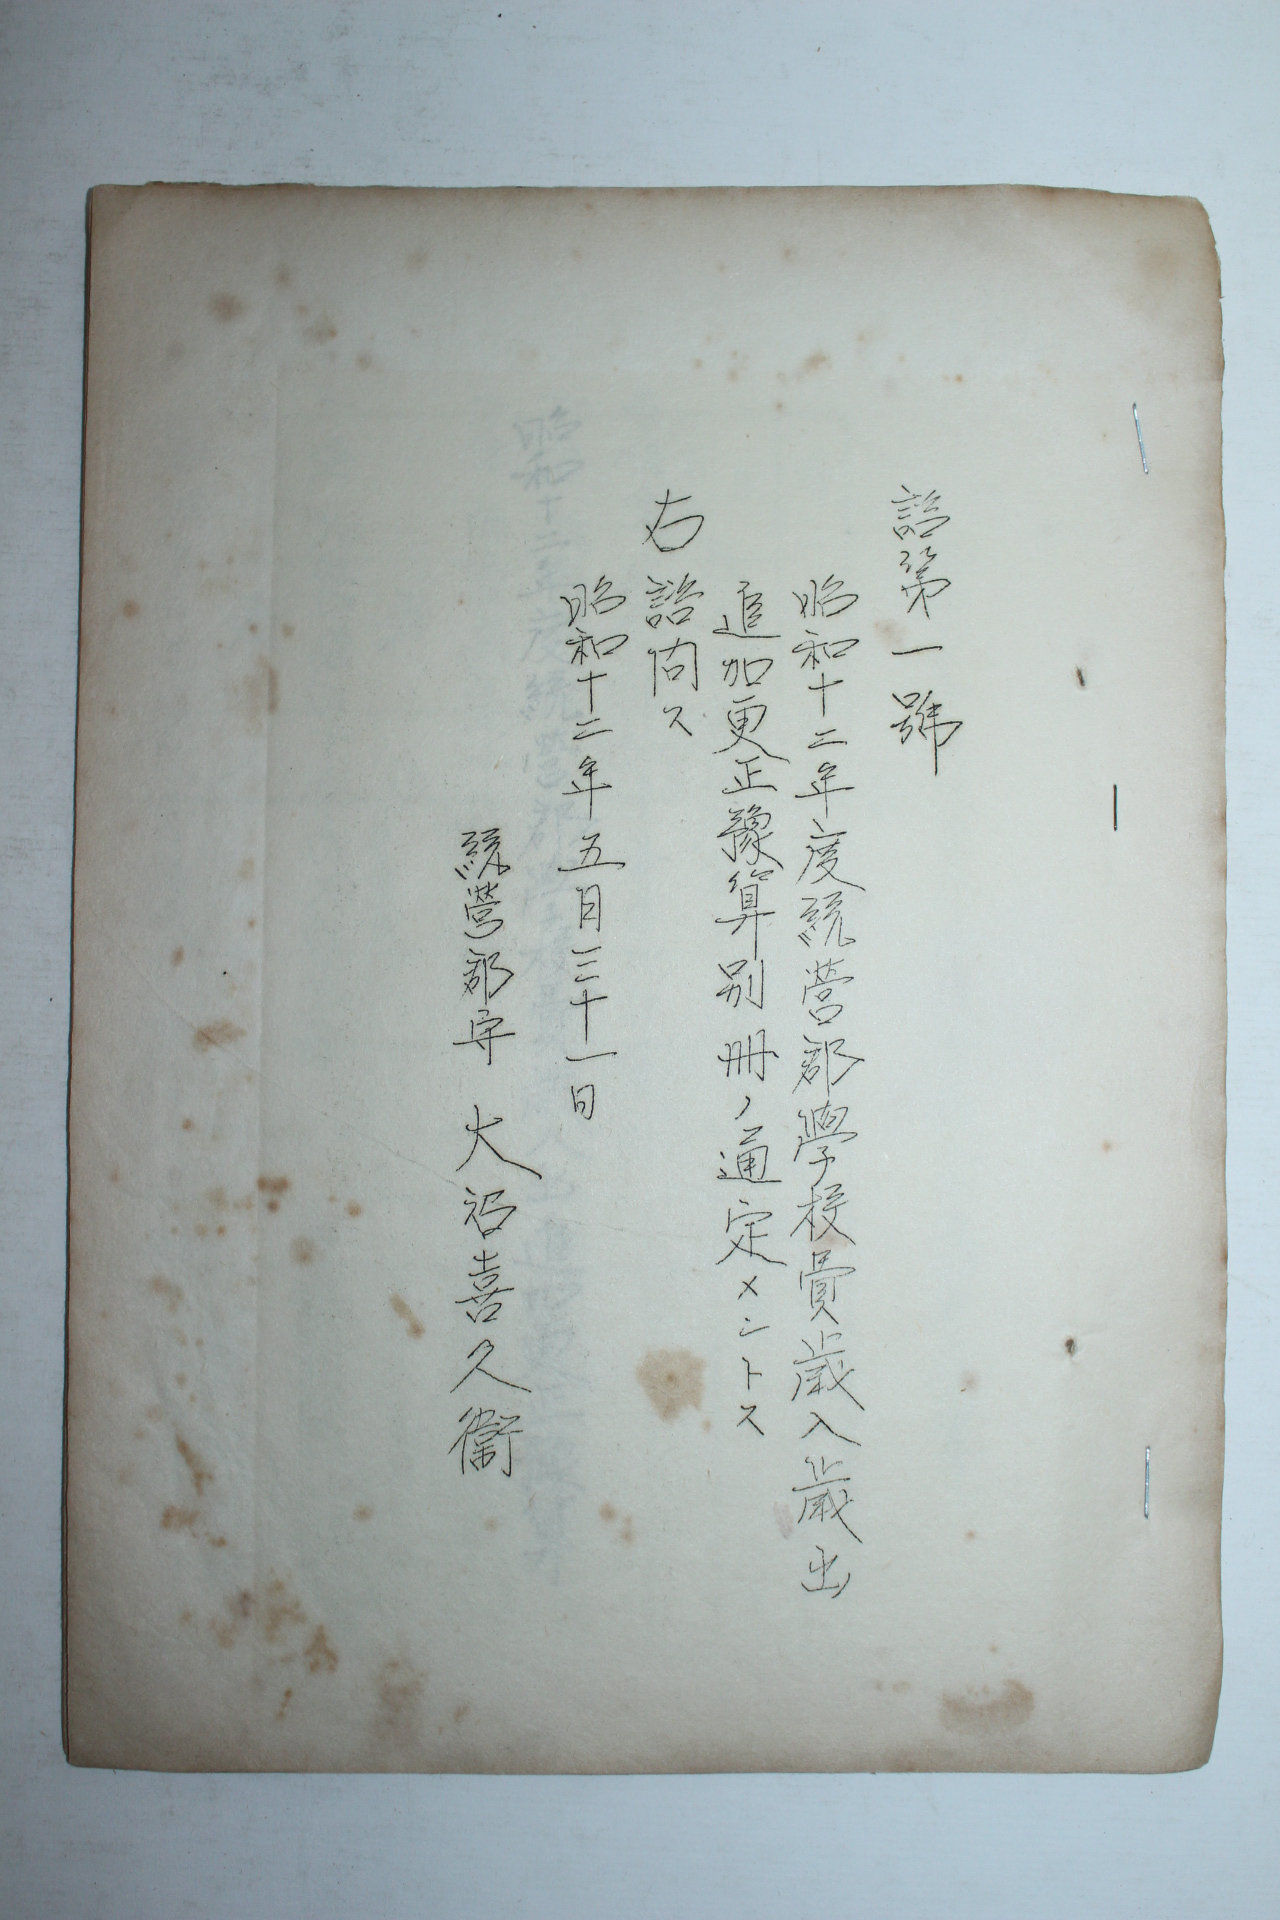 諮第一號
昭和十二年度統營郡學校費歳入歳出
追加更正豫算別冊ノ通定メントス
右諮問ス
昭和十二年五月三十一日
統營郡守 大沼喜久衞